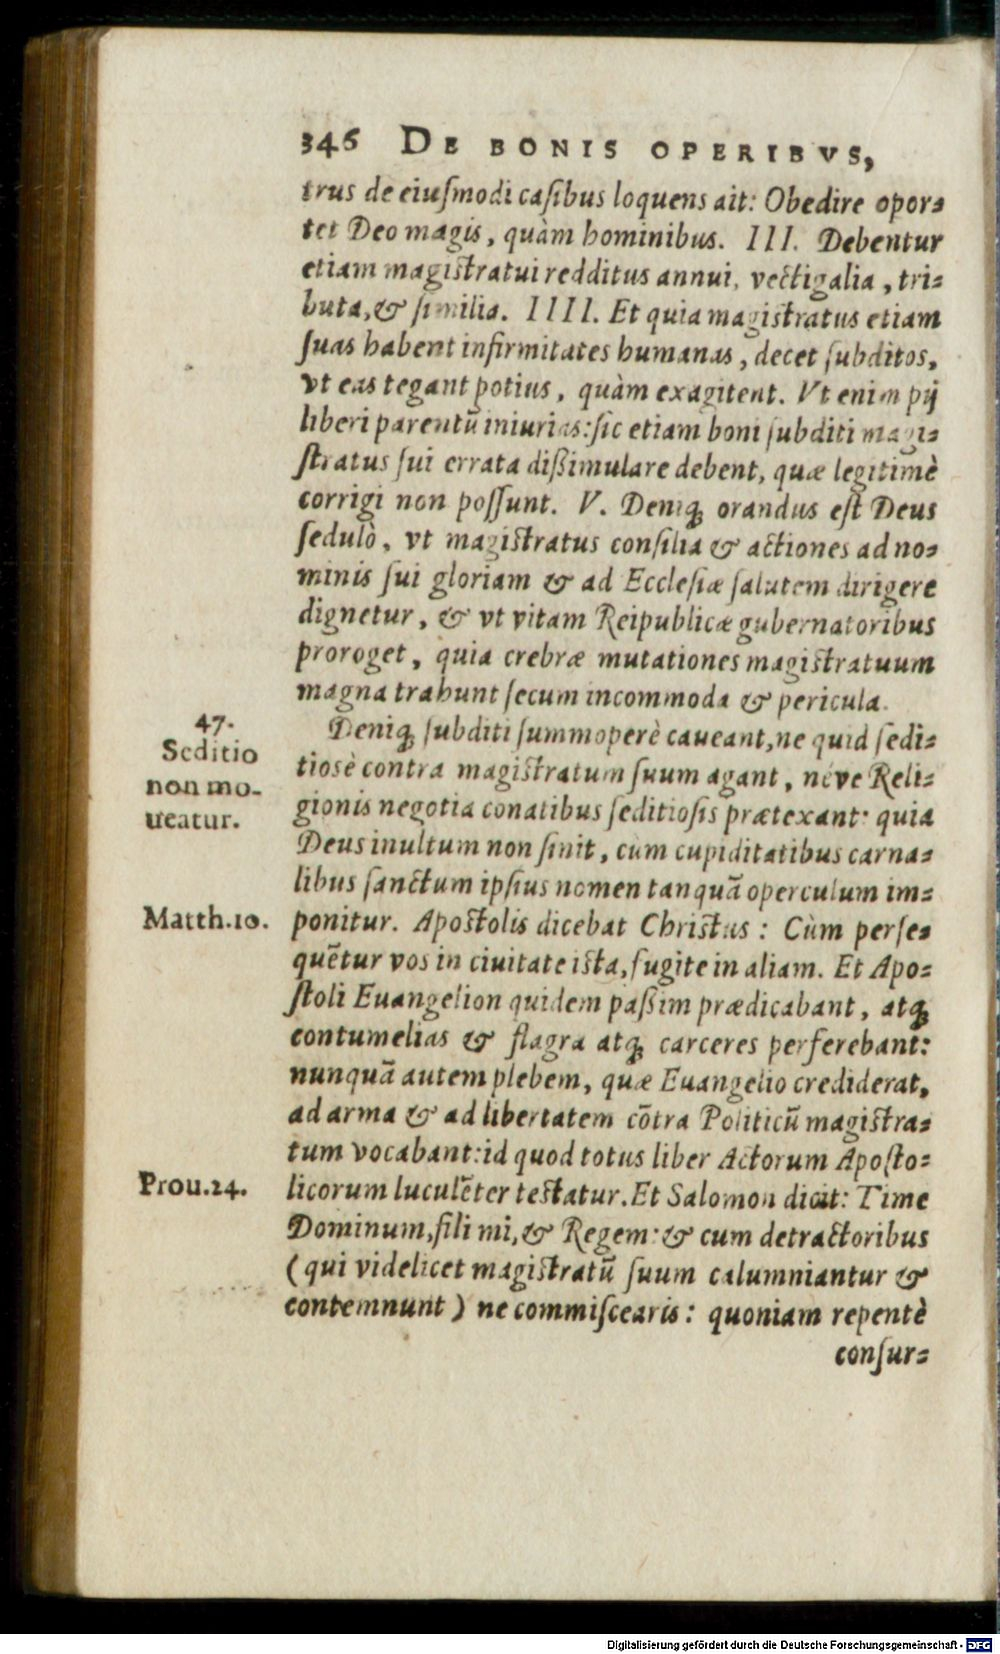 346 DE BONIS OPERIBVS,
trus de eiuſmodi caſibus loquens ait: Obedire opor-
tet Deo magis, quàm hominibus. III. Debentur
etiam magiſtratui redditus annui, vectigalia, tri-
buta, & ſimilia. IIII. Et quia magiſtratus etiam
ſuas habent infirmitates humanas, decet ſubditos,
vt eas tegant potius, quàm exagitent. Vt enim pij
liberi parentū iniurias: ſic etiam boni ſubditi magi-
ſtratus ſui errata dißimulare debent, quæ legitimè
corrigi non poſſunt. V. Deniq; orandus eſt Deus
ſedulò, vt magiſtratus conſilia & actiones ad no-
minis ſui gloriam & ad Eccleſiæ ſalutem dirigere
dignetur, & vt vitam Reipublicæ gubernatoribus
proroget, quia crebræ mutationes magiſtratuum
magna trahunt ſecum incommoda & pericula.
47.
Seditio
non mo-
ueatur.
Deniq; ſubditi ſummoperè caueant, ne quid ſedi-
tiosè contra magiſtratum ſuum agant, néve Reli-
gionis negotia conatibus ſeditioſis prætexant: quia
Deus inultum non ſinit, cùm cupiditatibus carna-
libus ſanctum ipſius nomen tanquā operculum im-
Matth.10.
ponitur. Apoſtolis dicebat Chriſtus: Cùm perſe-
quētur vos in ciuitate iſta, fugite in aliam. Et Apo-
ſtoli Euangelion quidem paßim prædicabant, atq;
contumelias & flagra atq; carceres perferebant:
nunquā autem plebem, quæ Euangelio crediderat,
ad arma & ad libertatem cōtra Politicū magiſtra-
tum vocabant: id quod totus liber Actorum Apoſto-
Prou.24.
licorum luculēter teſtatur. Et Salomon dicit: Time
Dominum, fili mi, & Regem: & cum detractoribus
(qui videlicet magiſtratū ſuum calumniantur &
contemnunt) ne commiſcearis: quoniam repentè
conſur-
Digitalisierung gefördert durch die Deutsche Forschungsgemeinschaft - DFG